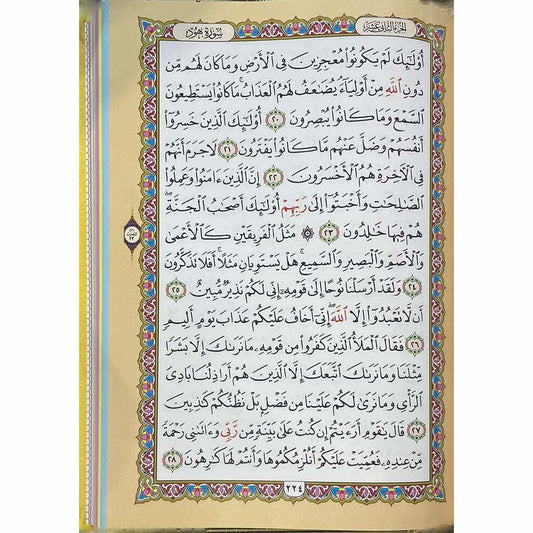 سورة هود
الجزء الثاني عشر
أُو۟لَٰٓئِكَ لَمْ يَكُونُوا۟ مُعْجِزِينَ فِى ٱلْأَرْضِ وَمَا كَانَ لَهُم مِّن
دُونِ ٱللَّهِ مِنْ أَوْلِيَآءَ يُضَٰعَفُ لَهُمُ ٱلْعَذَابُ مَا كَانُوا۟ يَسْتَطِيعُونَ
ٱلسَّمْعَ وَمَا كَانُوا۟ يُبْصِرُونَ ٢٠ أُو۟لَٰٓئِكَ ٱلَّذِينَ خَسِرُوٓا۟
أَنفُسَهُمْ وَضَلَّ عَنْهُم مَّا كَانُوا۟ يَفْتَرُونَ ٢١ لَا جَرَمَ أَنَّهُمْ
فِى ٱلْءَاخِرَةِ هُمُ ٱلْأَخْسَرُونَ ٢٢ إِنَّ ٱلَّذِينَ ءَامَنُوا۟ وَعَمِلُوا۟
ٱلصَّٰلِحَٰتِ وَأَخْبَتُوٓا۟ إِلَىٰ رَبِّهِمْ أُو۟لَٰٓئِكَ أَصْحَٰبُ ٱلْجَنَّةِ
هُمْ فِيهَا خَٰلِدُونَ ٢٣ ۞ مَثَلُ ٱلْفَرِيقَيْنِ كَٱلْأَعْمَىٰ
وَٱلْأَصَمِّ وَٱلْبَصِيرِ وَٱلسَّمِيعِ هَلْ يَسْتَوِيَانِ مَثَلًا أَفَلَا تَذَكَّرُونَ
٢٤ وَلَقَدْ أَرْسَلْنَا نُوحًا إِلَىٰ قَوْمِهِۦٓ إِنِّى لَكُمْ نَذِيرٌ مُّبِينٌ ٢٥
أَن لَّا تَعْبُدُوٓا۟ إِلَّا ٱللَّهَ إِنِّىٓ أَخَافُ عَلَيْكُمْ عَذَابَ يَوْمٍ أَلِيمٍ
٢٦ فَقَالَ ٱلْمَلَأُ ٱلَّذِينَ كَفَرُوا۟ مِن قَوْمِهِۦ مَا نَرَىٰكَ إِلَّا بَشَرًا
مِّثْلَنَا وَمَا نَرَىٰكَ ٱتَّبَعَكَ إِلَّا ٱلَّذِينَ هُمْ أَرَاذِلُنَا بَادِىَ
ٱلرَّأْىِ وَمَا نَرَىٰ لَكُمْ عَلَيْنَا مِن فَضْلٍۭ بَلْ نَظُنُّكُمْ كَٰذِبِينَ
٢٧ قَالَ يَٰقَوْمِ أَرَءَيْتُمْ إِن كُنتُ عَلَىٰ بَيِّنَةٍ مِّن رَّبِّى وَءَاتَىٰنِى رَحْمَةً
مِّنْ عِندِهِۦ فَعُمِّيَتْ عَلَيْكُمْ أَنُلْزِمُكُمُوهَا وَأَنتُمْ لَهَا كَٰرِهُونَ ٢٨
٢٢٤